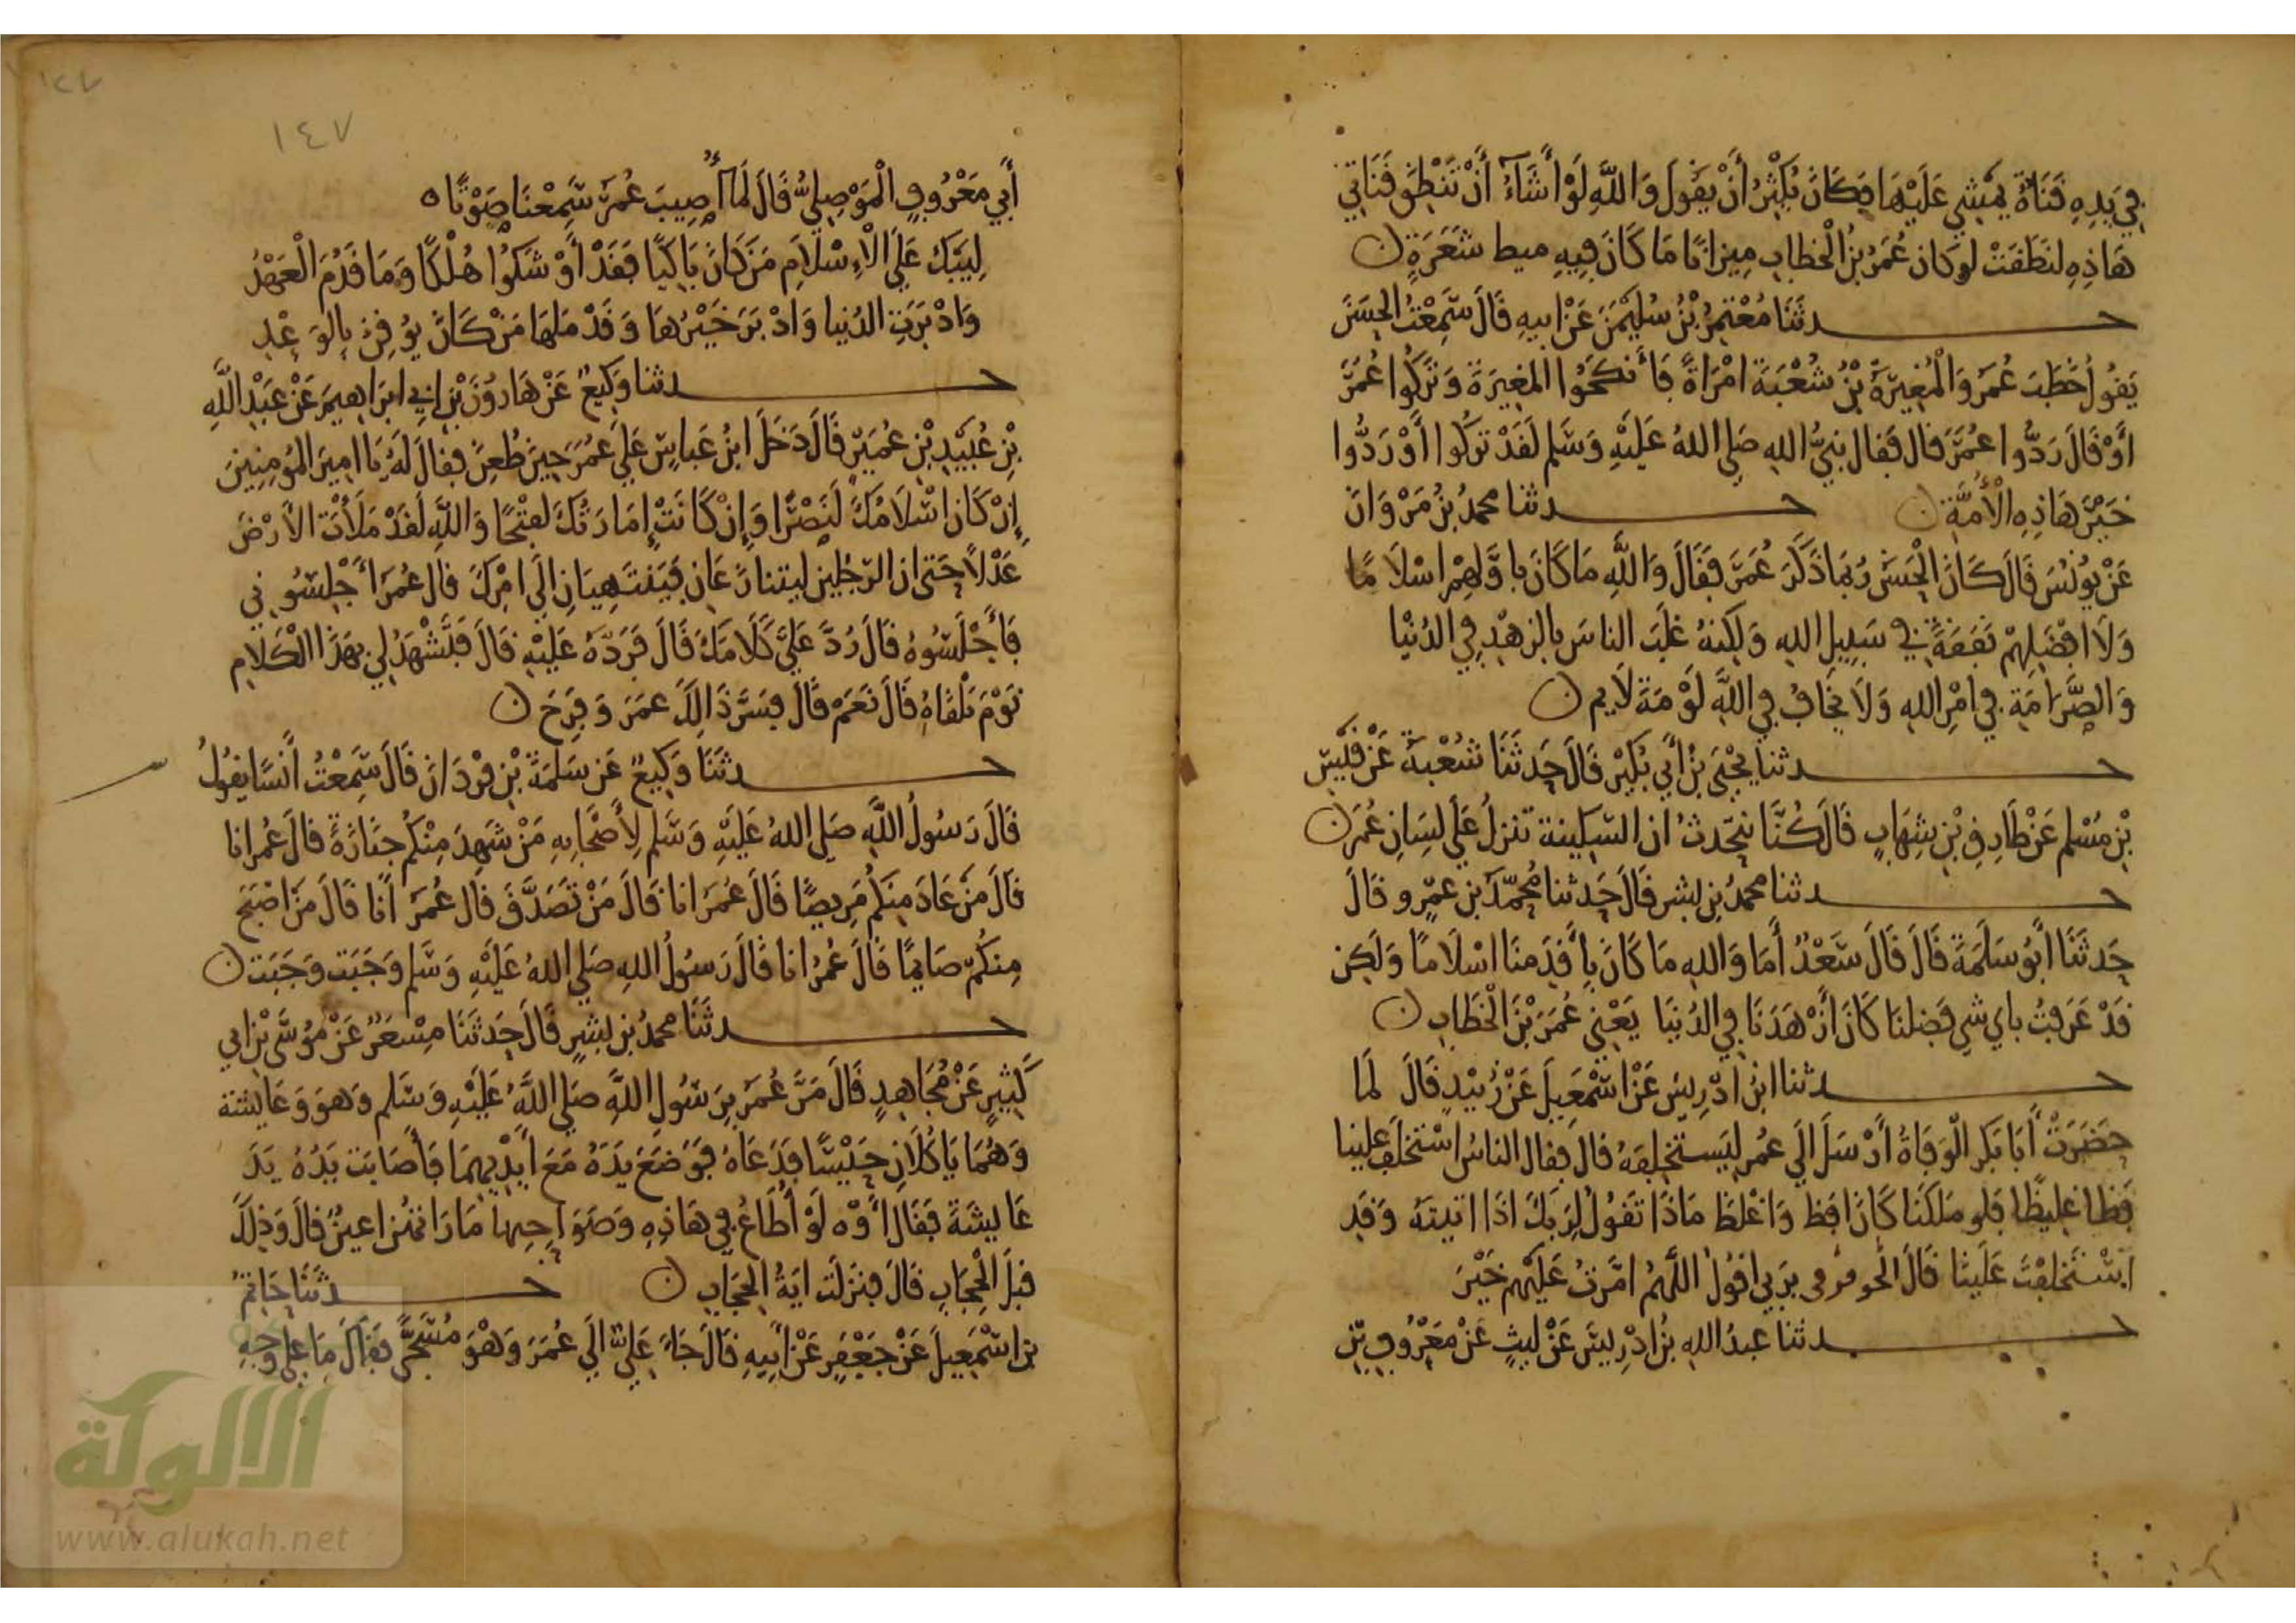 فِي يَدِهِ قَنَاةٌ يَمْشِي عَلَيْهَا فَكَانَ يُكْثِرُ أَنْ يَقُولَ وَاللَّهِ لَوْ أَشَآءُ أَنْ تَنْطِقَ قَنَاتِي
هَاذِهِ لنَطَقَتْ لو كان عُمَرُ بنُ الْخطابِ مِيزانًا مَا كَانَ فِيهِ ميط شَعَرَةٍ ن
حدثَنَا مُعْتمِرُ بْنُ سُلَيْمَنَ عَنْ ابيهِ قَالَ سَمِعْتُ الحَسَنَ
يَقُولُ خَطَبَ عُمَرَ وَالْمُغِيرَةَ بْنُ شُعْبَةَ امْرَاةً فَأَنْكَحُوا المغِيرَةَ وَتَرَكُوا عُمَرَ
أوْ قَالَ رَدُّوا عُمَرَ قال فَقال نَبِيُّ اللهِ صَلى اللهُ عَلَيْهِ وَسَلم لَقَدْ تَرَكُوا أوْ رَدُّوا
خَيْرَ هَاذِهِ الْأُمَّةِ ن حدثنا محمدُ بنُ مَرْوَانَ
عَنْ يُونُسَ قَالَ كَانَ الْحَسَنُ رُبَمَا ذَكَرَ عُمَرَ فَقَالَ وَاللَّهِ مَا كَانَ بِاوَّلِهِمْ اسْلَامًا
وَلَا افْضَلِهِمْ نَفَقَةً فِي سَبِيلِ اللهِ وَلكِنهُ غلَبَ الناسَ بِالزهْدِ فِي الدُنْيا
وَالصَّرَامَةِ فِي امْرِ اللهِ وَلَا يَخَافُ فِي اللَّهِ لَوْمَةَ لَايم ن
حدثنا يَحْيَى بْنُ أَبِي بُكَيْرٍ قَالَ حَدثَنَا شُعْبَةُ عَنْ قَيْسِ
بْنِ مُسْلِم عَنْ طَارِقِ بْنِ شِهَابٍ قَالَ كُنَّا نَتَحدثُ ان السكِينة تنزلُ عَلَى لِسَانِ عُمَرَ ن
حدثنا محمدُ بن بشر قَالَ حَدثنا مُحَمّدُ بن عمْرٍو قَالَ
حَدثَنَا أَبُو سَلَمَةَ قَالَ قَالَ سَعْدٌ أَمَا وَاللهِ مَا كَانَ بِأَقْدَمِنَا اسْلَامًا وَلَكِن
قَدْ عَرَفْتُ باي شي فَضلنَا كَانَ أَزْهَدَنَا فِي الدُنيَا يَعْنِي عُمَرَ بْنَ الْخَطَابِ ن
حدثنا ابنُ ادْرِيسَ عَنْ اسْمَعِيلَ عَنْ زُبَيْدٍ قَالَ لَمَا
حَضَرَتْ أبَا بَكرٍ الْوَفَاةُ أَرْسَلَ الَي عُمَر لِيَستخْلِفهُ قال فقال الناسُ اسْتخلَفَ عَلينا
فَظا غلِيظًا فَلو مَلَكَنَا كَانَ افظ وَاغْلظَ مَاذَا تَقُولُ لِرَبِكَ اذَا اتيتهُ وَقَدِ
اسْتَخلفتَ عَلَينا قَالَ بِرَبي اقولُ اللَّهمُ امَّرْتُ عَلَيْهِم خَيْرَ
حدثنا عبدُ اللهِ بْنُ ادْرِيسَ عَنْ ليثٍ عَنْ مَعْرُوفِ بْنِ
١٢٧
١٤٧
أَبِي مَعْرُوفٍ الْمَوْصِلِيِّ قَالَ لَمَا أُصِيبَ عُمَرُ سَمِعْنَا صَوْتًا ه
لِيَبْكِ عَلَى الْإِسْلَامِ مَنْ كَانَ بَاكِيًا فَقَدْ أَوْشَكُوا هُلْكًا وَمَا قَدُمَ الْعَهْدُ
وَادْبَرَتِ الدُنيا وَادْبَرَ خَيْرُهَا وَقَدْ مَلهَا مَنْ كَانَ يُوقِنُ بِالوَعْدِ
حدثنا وَكِيعٌ عَنْ هَارُونَ بْنِ ابِي ابرَاهِيمَ عَنْ عَبْدِ اللَّهِ
بْنِ عُبَيْدِ بْنِ عُمَيْرٍ قَالَ دَخَلَ ابنُ عَباسٍ عَلَى عُمَرَ حِينَ طُعِنَ فقالَ لَهُ يَا امِيرَ المؤْمِنِينَ
إِنْ كَانَ اسْلَامُكَ لَنَصْرًا وَإِنْ كَانَتْ إِمَارَتُكَ لفَتْحًا وَاللَّهِ لَقَدْ مَلَأْتَ الأرْضَ
عَدْلًا حَتى ان الرجُلين ليتنازَعَانِ فَيَنتهِيَانِ الَى امْرِكَ قال عُمَرُ أَجْلِسُونِي
فَأَجْلَسُوهُ قَالَ رُدَّ عَلَيَّ كَلَامَكَ قَالَ فَرَدَّهُ عَلَيْهِ قَالَ فَتَشْهَدُ لِي بِهَذَا الْكَلَامِ
يَوْمَ تَلْقَاهُ قَالَ نَعَمْ قَالَ فَسَرَّ ذَالِكَ عمَرَ وَفَرِحَ ن
حدثَنَا وَكِيعٌ عَن سَلمَةَ بْنِ وَرْدَانَ قَالَ سَمِعْتُ أَنَسًا يقُولُ
قَالَ رَسُولُ اللَّهِ صَلى اللهُ عَلَيْهِ وَسَلم لِأَصْحَابِهِ مَنْ شَهِدَ مِنْكُمْ جِنَازَةً قالَ عُمر انا
قَالَ مَنْ عَادَ مِنكُمْ مَرِيضًا قَالَ عُمَرَ انا قَالَ مَنْ تَصَدَّقَ قَال عُمَرَ أَنا قَالَ مَنْ اصْبَحَ
مِنكُمْ صَايمًا قَالَ عُمَرُ انا قَالَ رَسُولُ اللهِ صَلى اللهُ عَلَيْهِ وَسَلم وَجَبَت وَجَبَت ن
حدثَنَا محمدُ بن بشرٍ قَالَ حَدثَنَا مِسْعَرٌ عَنْ مُوسَى بْنِ ابي
كَثِيرٍ عَنْ مُجَاهِدٍ قَالَ مَرَّ عُمَرَ بِرَسُولِ اللَّهِ صَلى اللَّهُ عَلَيْهِ وَسَلم وَهوَ وَعَايشة
وَهُمَا يَاكُلَانِ حَيْسًا فَدَعَاهُ فَوَضَعَ يَدَهُ مَعَ أَيْدِيهِمَا فَأَصَابَت يَدُهُ يَدَ
عَايِشَةَ فَقَالَ أَوْه لَوْ أُطَاعُ فِي هَاذِهِ وَصَوَاحِبِهَا مَا رَاتهُن اعينٌ قالَ وَذلِكَ
قبلَ الْحِجَابِ قَالَ فنزَلَت ايَةُ الحِجَابِ ن حدثَنَا حَاتِمُ
بن اسْمَعِيلَ عَنْ جَعْفَرٍ عَنْ أَبِيهِ قَالَ جَاءَ عَلِيٌّ الَي عُمَرَ وَهْوَ مُسَجَّى فَقالَ مَا عَلى وَجهِ
الألوكة
www.alukah.net